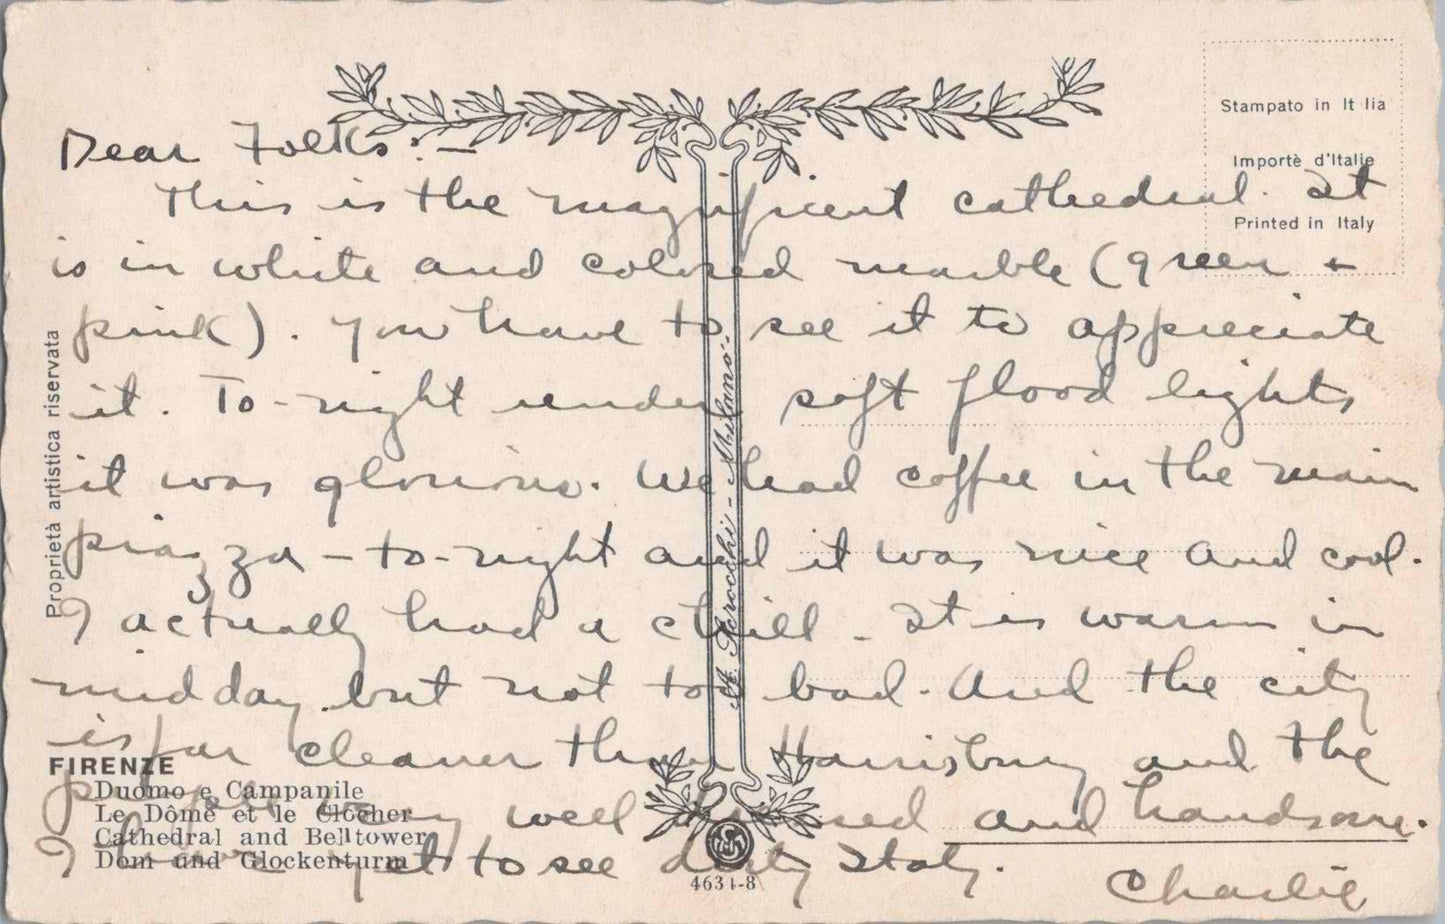 Dear Folks:—
This is the magnificent cathedral. It
is in white and colored marble (green +
pink). You have to see it to appreciate
it. To-night under soft flood lights
it was glorious. We had coffee in the main
piazza — to-night and it was nice and cool.
I actually had a chill. It is warm in
midday but not too bad. And the city
is far cleaner than Harrisburg and the
people very well dressed and handsome.
I have yet to see dirty Italy.
Charlie
Stampato in It lia
Importè d'Italie
Printed in Italy
Proprietà artistica riservata
A. Scrocchi - Milano
FIRENZE
Duomo e Campanile
Le Dôme et le Clocher
Cathedral and Belltower
Dom und Glockenturm
4631-8